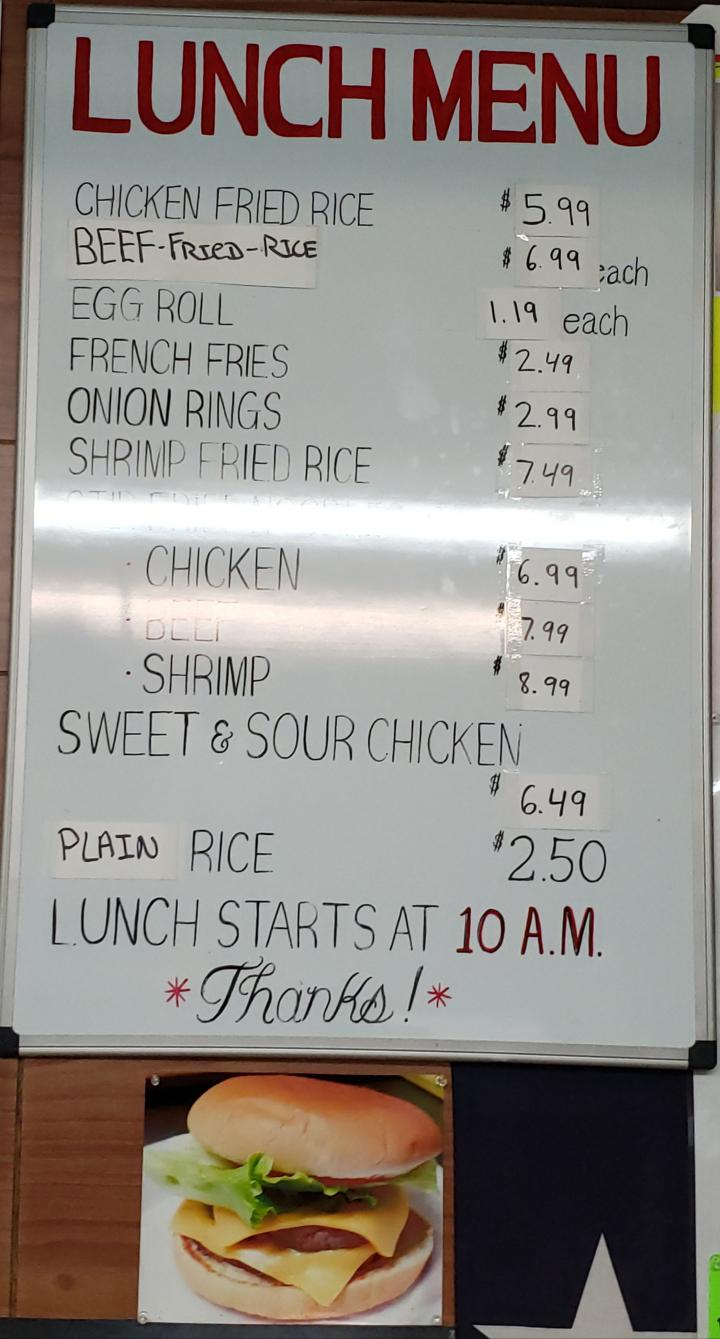 LUNCH MENU
CHICKEN FRIED RICE $ 5.99
BEEF-FRIED-RICE $ 6.99 each
EGG ROLL 1.19 each
FRENCH FRIES $ 2.49
ONION RINGS $ 2.99
SHRIMP FRIED RICE $ 7.49
STIR FRIED NOODLES
· CHICKEN $ 6.99
· BEEF $ 7.99
· SHRIMP $ 8.99
SWEET & SOUR CHICKEN
$ 6.49
PLAIN RICE $2.50
LUNCH STARTS AT 10 A.M.
*Thanks!*